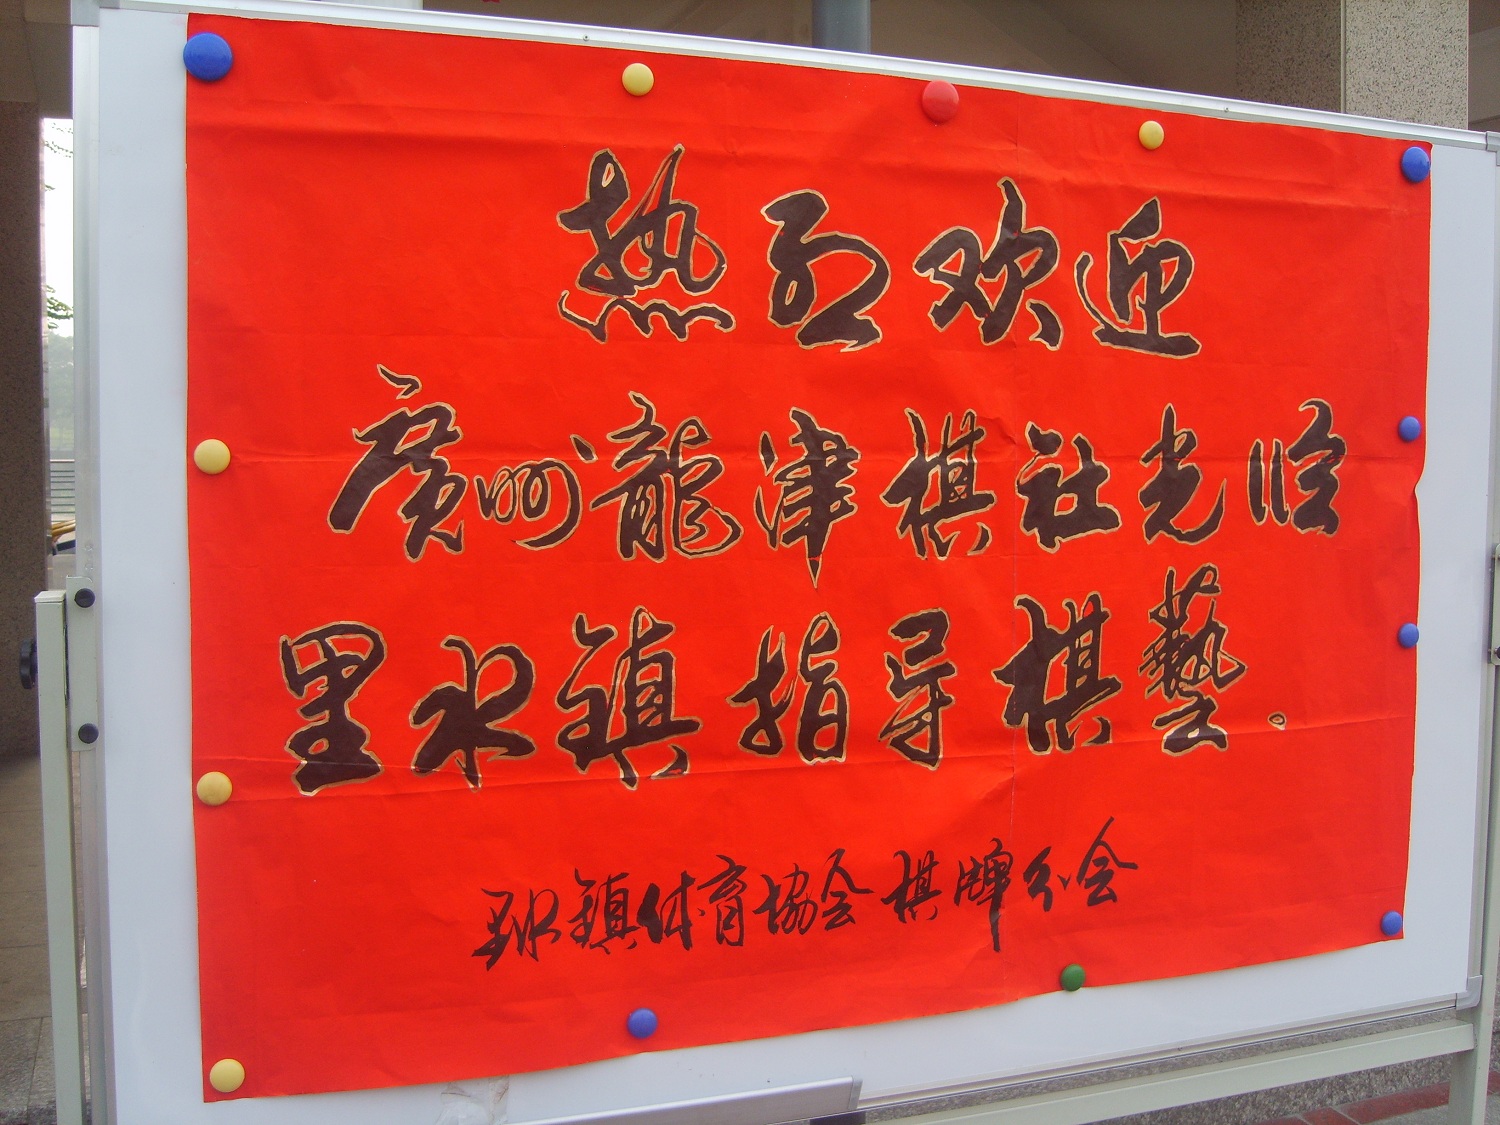 热烈欢迎
廣州龍津棋社光临
里水镇指导棋藝.
里水镇体育協会棋牌分会